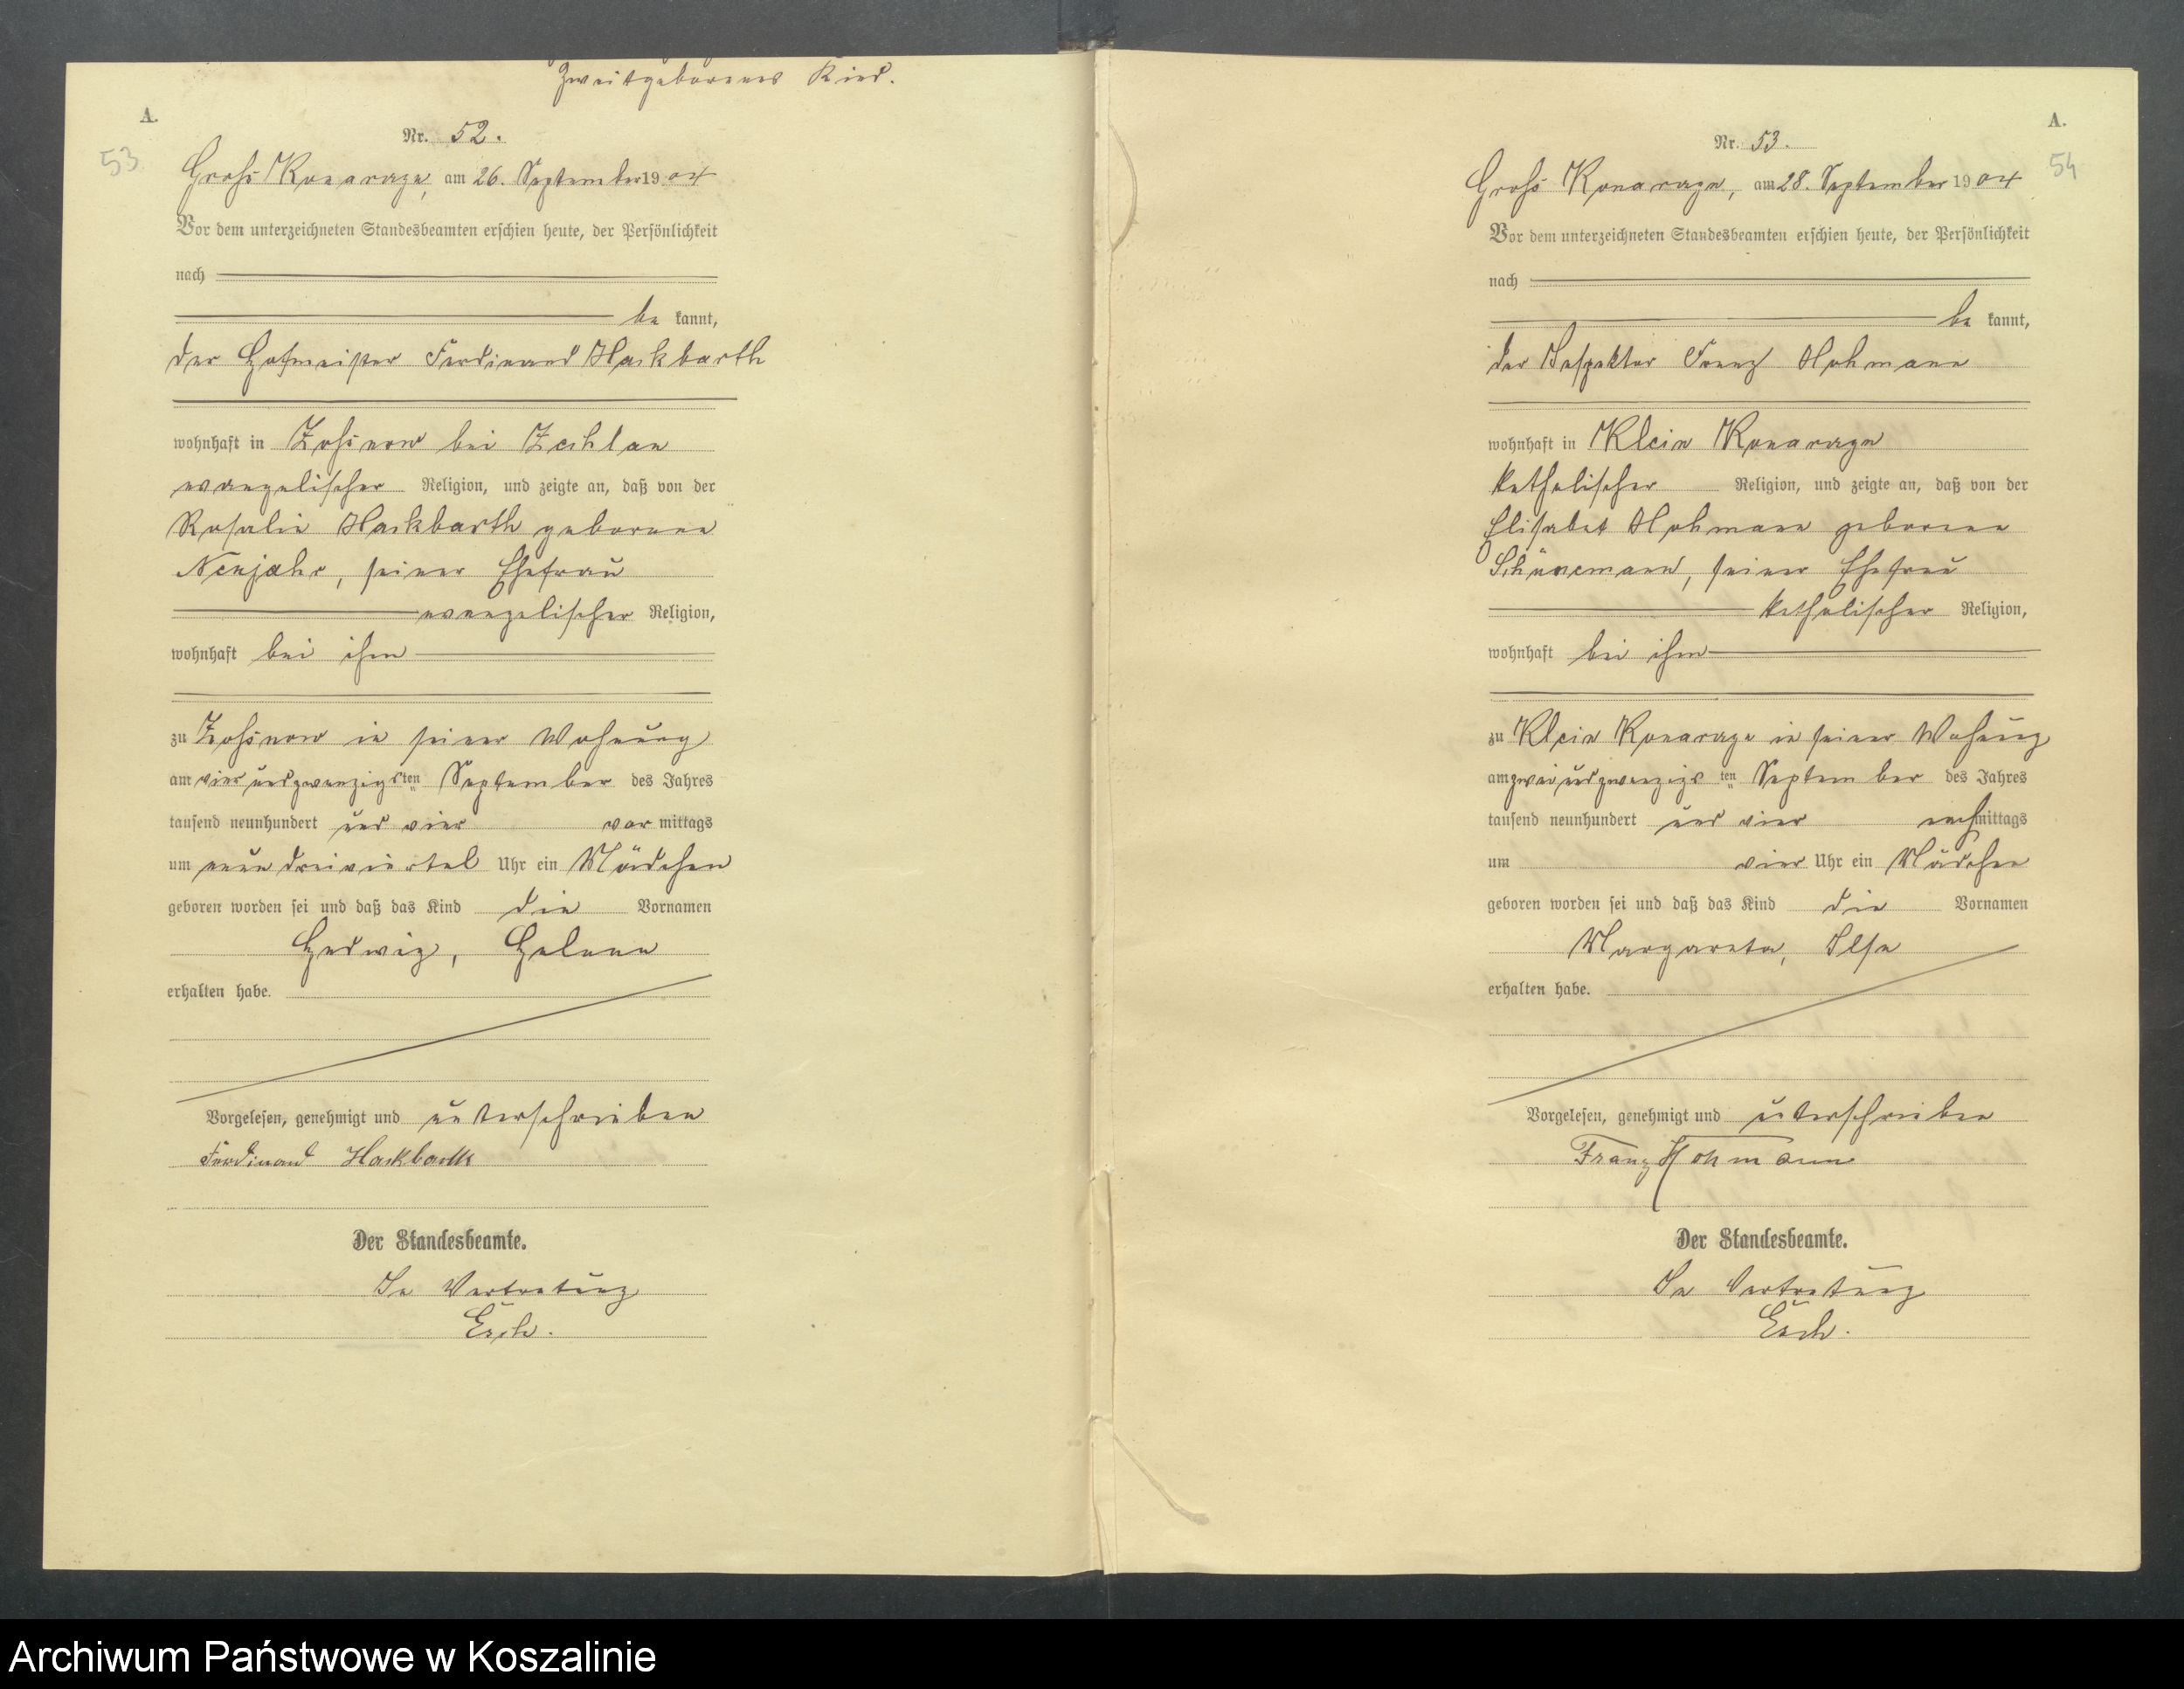 Zweitgeborenes Kind.
A.
Nr. 52.
53
Groß Konarczyn, am 26. September 1904
Vor dem unterzeichneten Standesbeamten erschien heute, der Persönlichkeit
nach
be kannt,
der Hofmeister Ferdinand Hackbarth
wohnhaft in Zoßnow bei Zechlau
evangelischer Religion, und zeigte an, daß von der
Rosalie Hackbarth geborene
Neujahr, seiner Ehefrau
evangelischer Religion,
wohnhaft bei ihm
zu Zoßnow in seiner Wohnung
am vierundzwanzigsten September des Jahres
tausend neunhundert und vier vor mittags
um neun dreiviertel Uhr ein Mädchen
geboren worden sei und daß das Kind die Vornamen
Hedwig, Helene
erhalten habe.
Vorgelesen, genehmigt und unterschrieben
Ferdinand Hackbarth
Der Standesbeamte.
In Vertretung
Esch.
A.
Nr. 53.
54
Groß Konarczyn, am 28. September 1904
Vor dem unterzeichneten Standesbeamten erschien heute, der Persönlichkeit
nach
be kannt,
der Inspektor Franz Hohmann
wohnhaft in Klein Konarczyn
katholischer Religion, und zeigte an, daß von der
Elisabet Hohmann geborene
Schünemann, seiner Ehefrau
katholischer Religion,
wohnhaft bei ihm
zu Klein Konarczyn in seiner Wohnung
am zweiundzwanzigsten September des Jahres
tausend neunhundert und vier nachmittags
um vier Uhr ein Mädchen
geboren worden sei und daß das Kind die Vornamen
Margareta, Ilse
erhalten habe.
Vorgelesen, genehmigt und unterschrieben
Franz Hohmann
Der Standesbeamte.
In Vertretung
Esch.
Archiwum Państwowe w Koszalinie